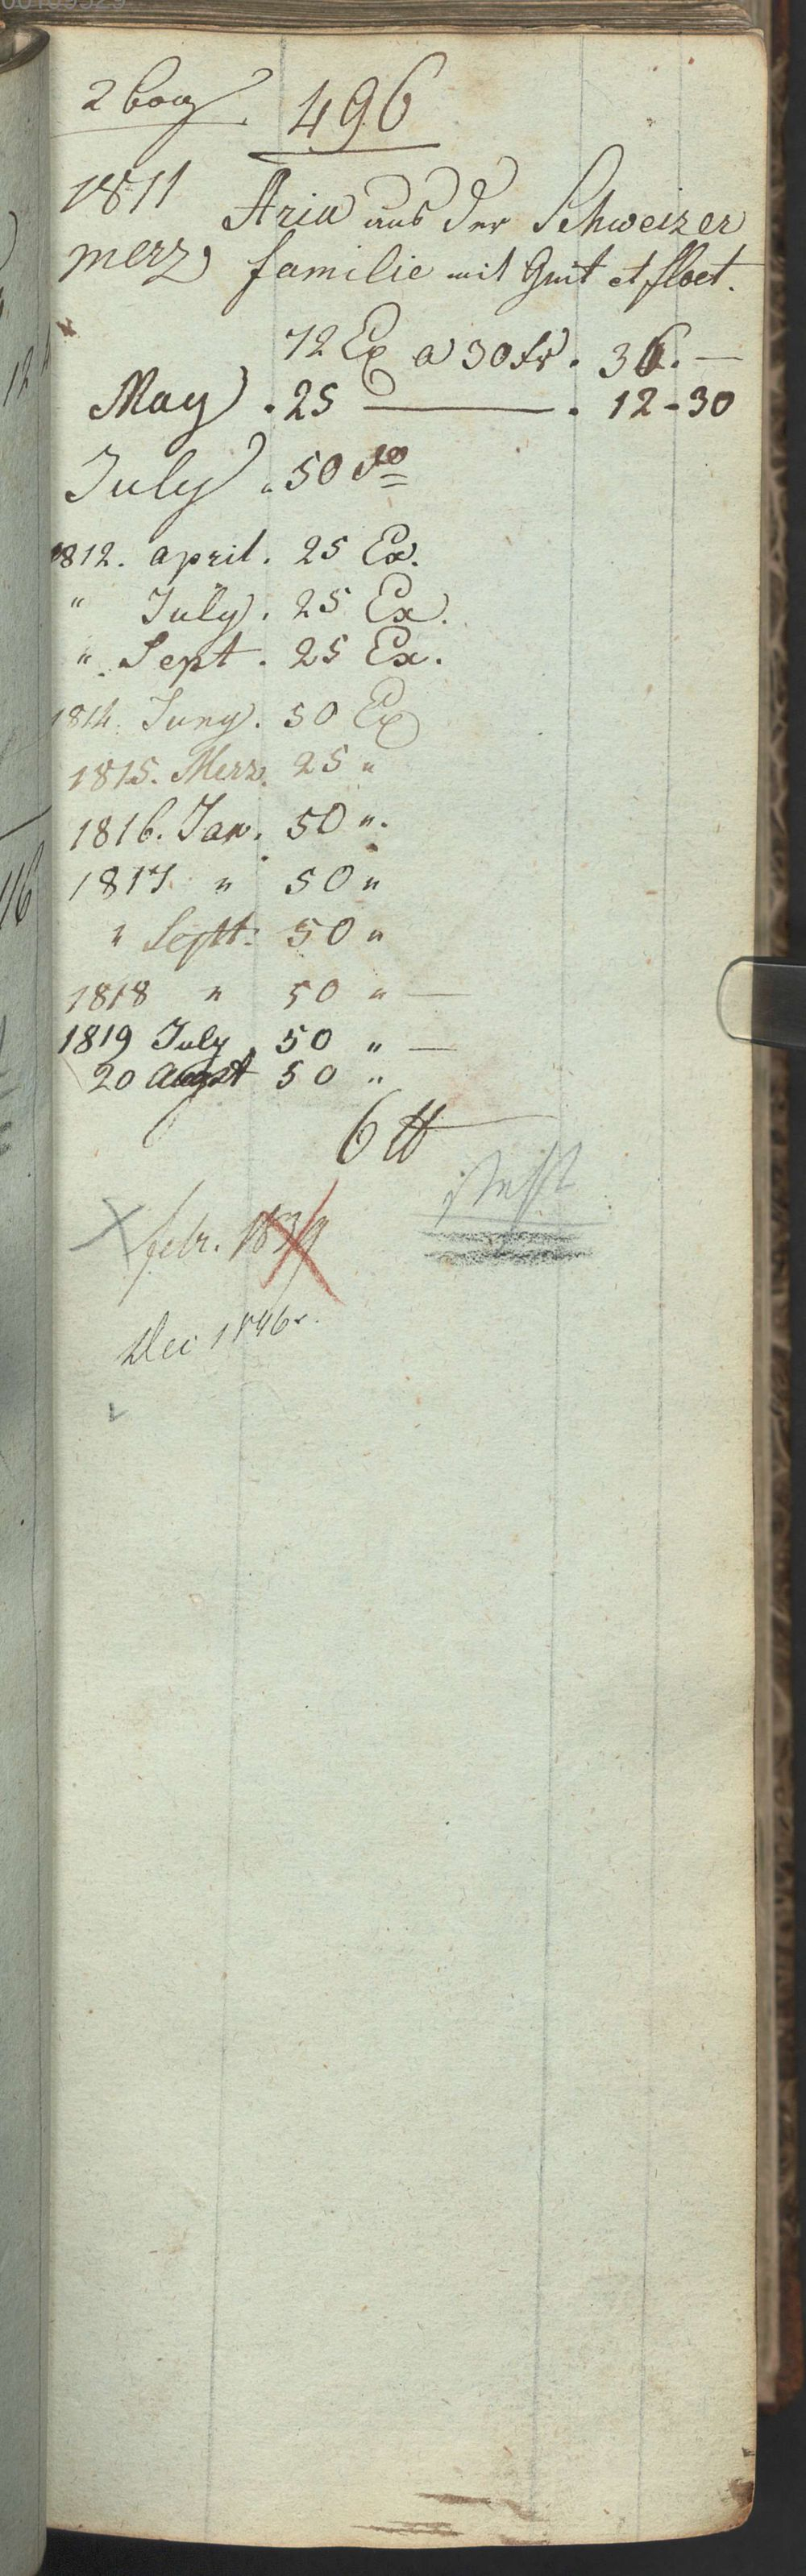 2 bog. 496
1811 Aria aus der Schweizer
merz familie mit Guit et floet.
72 Ex a 30 Xr. 36. —
May . 25 — . 12-30
July . 50 do
1812. april. 25 Ex.
" July. 25 Ex.
" Sept. 25 Ex.
1814. Juny. 50 Ex
1815. Merz. 25 "
1816. Jan. 50 ".
1817 " 50 "
" Septt: 50 "
1818 " 50 " —
1819 July. 50 " —
20 Augst 50 "
6 tt
febr. 1839
Dec 1846.